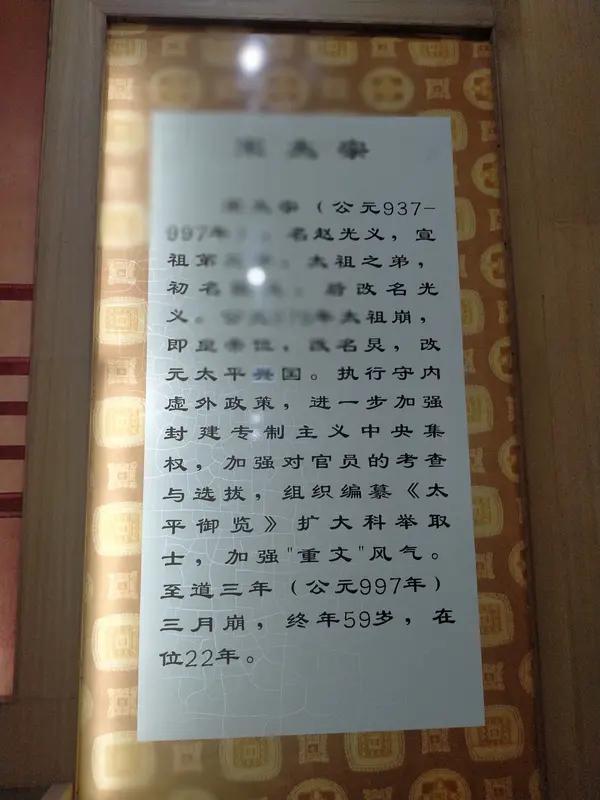 宗
（公元937-
997年，名赵光义，宣
祖第，太祖之弟，
初名，后改名光
义。公元年太祖崩，
即皇帝位，改名炅，改
元太平兴国。执行守内
虚外政策，进一步加强
封建专制主义中央集
权，加强对官员的考查
与选拔，组织编纂《太
平御览》扩大科举取
士，加强"重文"风气。
至道三年（公元997年）
三月崩，终年59岁，在
位22年。